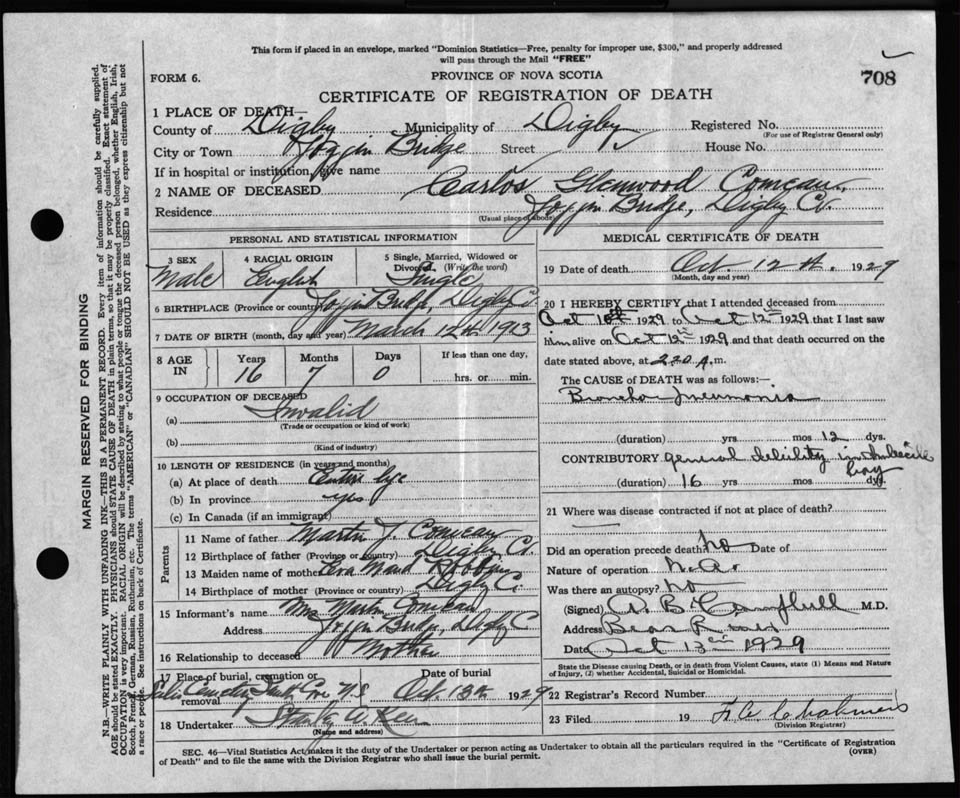 This form if placed in an envelope, marked "Dominion Statistics—Free, penalty for improper use, $300," and properly addressed
will pass through the Mail "FREE"
FORM 6.
PROVINCE OF NOVA SCOTIA
708
CERTIFICATE OF REGISTRATION OF DEATH
1 PLACE OF DEATH—
County of Digby Municipality of Digby Registered No.
(For use of Registrar General only)
City or Town Joggin Bridge Street House No.
If in hospital or institution, give name
2 NAME OF DECEASED Carlos Glenwood Comeau
Residence Joggin Bridge, Digby Co.
(Usual place of abode)
PERSONAL AND STATISTICAL INFORMATION
3 SEX 4 RACIAL ORIGIN 5 Single, Married, Widowed or
Divorced (Write the word)
Male English Single
6 BIRTHPLACE (Province or country) Joggin Bridge, Digby Co.
7 DATE OF BIRTH (month, day and year) March 12th 1913
8 AGE IN Years Months Days If less than one day,
16 7 0 hrs. or min.
9 OCCUPATION OF DECEASED
(a) Invalid
(Trade or occupation or kind of work)
(b)
(Kind of industry)
10 LENGTH OF RESIDENCE (in years and months)
(a) At place of death Entire life
(b) In province yes
(c) In Canada (if an immigrant)
Parents
11 Name of father Martin J. Comeau
12 Birthplace of father (Province or country) Digby Co.
13 Maiden name of mother Eva Maud
14 Birthplace of mother (Province or country) Digby Co.
15 Informant's name Mrs Martin Comeau
Address Joggin Bridge, Digby Co
16 Relationship to deceased Mother
17 Place of burial, cremation or removal Date of burial
Cemetery N.S. Oct. 13th 1929
18 Undertaker Stanley
(Name and address)
MEDICAL CERTIFICATE OF DEATH
19 Date of death Oct. 12th. 1929
(Month, day and year)
20 I HEREBY CERTIFY that I attended deceased from
Oct 10th 1929 to Oct 12th 1929 that I last saw
him alive on Oct 12th 1929 and that death occurred on the
date stated above, at 2.20 A.m.
The CAUSE of DEATH was as follows:—
Broncho Pneumonia
(duration) yrs mos 12 dys.
CONTRIBUTORY general debility in imbecile
boy
(duration) 16 yrs mos dys
21 Where was disease contracted if not at place of death?
Did an operation precede death? no Date of
Nature of operation N.A.
Was there an autopsy? no
(Signed) A. B. Campbell M.D.
Address Bear River
Date Oct 13th 1929
State the Disease causing Death, or in death from Violent Causes, state (1) Means and Nature
of Injury, (2) whether Accidental, Suicidal or Homicidal.
22 Registrar's Record Number
23 Filed 19
(Division Registrar)
SEC. 46—Vital Statistics Act, makes it the duty of the Undertaker or person acting as Undertaker to obtain all the particulars required in the "Certificate of Registration
of Death" and to file the same with the Division Registrar who shall issue the burial permit.
(OVER)
MARGIN RESERVED FOR BINDING
N.B.—WRITE PLAINLY WITH UNFADING INK—THIS IS A PERMANENT RECORD. Every item of information should be carefully supplied.
AGE should be stated EXACTLY. PHYSICIANS should STATE CAUSE OF DEATH in plain terms, so that it may be properly classified. Exact statement of
OCCUPATION is very important. RACIAL ORIGIN will be described by stating to what people or tongue the deceased person belonged, whether English, Irish,
Scotch, French, German, Russian, Ruthenian, etc. The terms "AMERICAN" or "CANADIAN" SHOULD NOT BE USED as they express citizenship but not
a race or people. See instructions on back of Certificate.